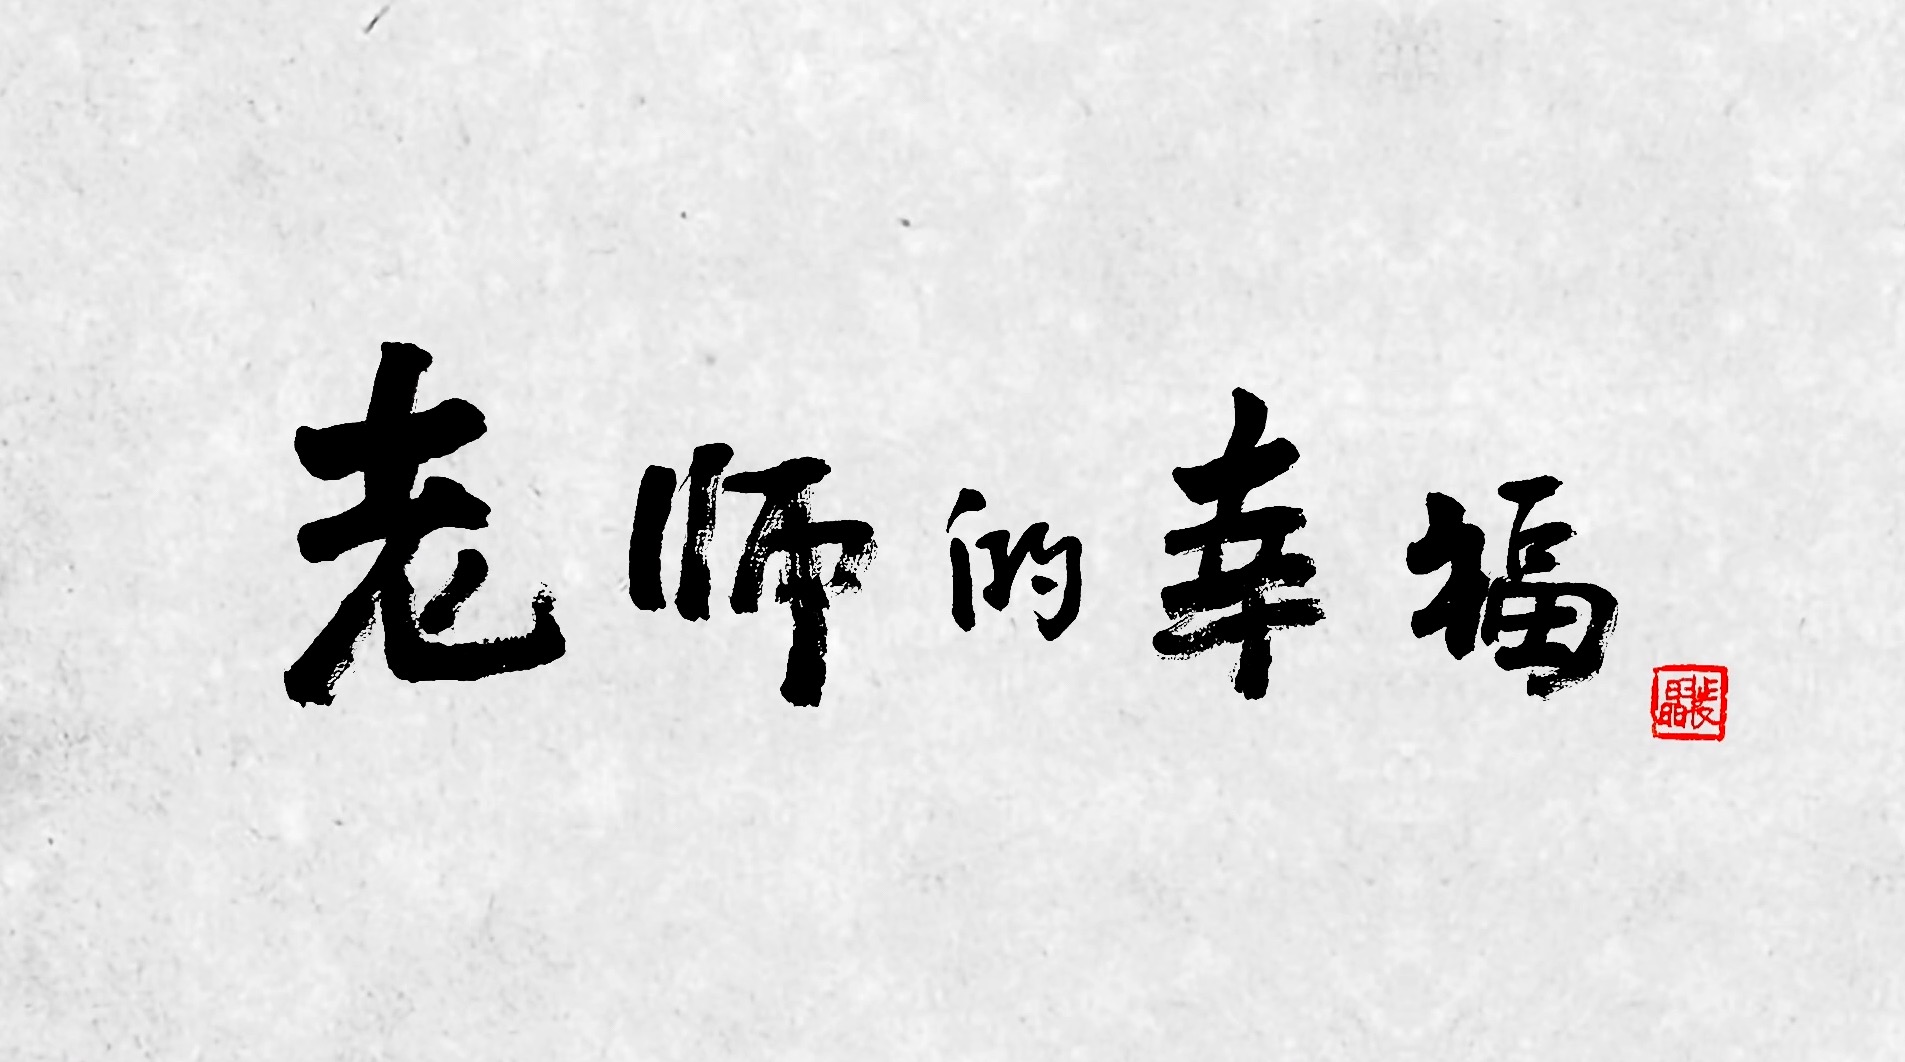 老师的幸福